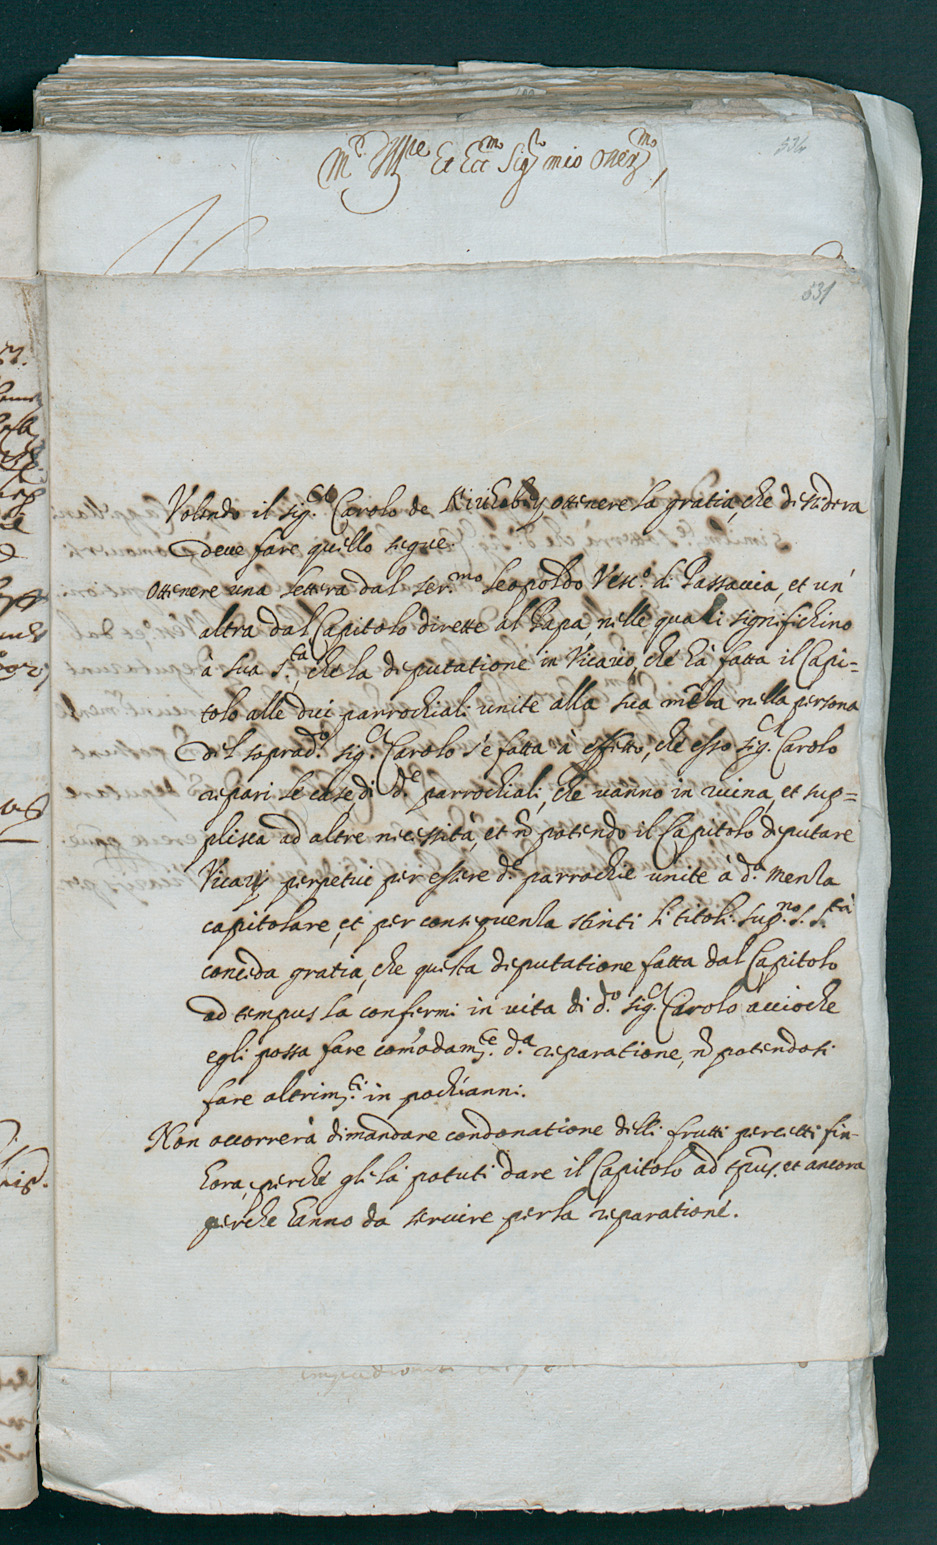 534
M.to Ill.re Et Ecc.mo Sig.r mio oner.mo
531
Volendo il sig.r Co: Carolo de ottenere la gratia, che desidera
deue fare quello segue.
Ottenere una lettera dal ser.mo Leopoldo Vesc.o di Passauia, et un'
altra dal Capitolo dirette al Papa, nelle quali significhino
à sua S.tà che la deputatione in Vicario, che hà fatta il Capi=
tolo alle duei parrochiali unite alla sua mensa nella persona
del soprad.o sig.r Carolo s'è fatta à effetto, che esso sig.r Carolo
ripari le case di d.e parrochiali, che uanno in ruina, et sup=
plisca ad altre necessità, et nõ potendo il Capitolo deputare
Vicarij perpetui per essere d.e parrochie unite à d.a menza
capitolare, et per conseguenza stinti li titoli. Sup.no S. S.tà
conceda gratia, che questa deputatione fatta dal Capitolo
ad tempus la confermi in uita di d.o sig.r Carolo accioche
egli possa fare com̃odam.te d.a reparatione, nõ potendosi
fare altrim.ti in pochi anni.
Non occorrerà dimandare condonatione delli frutti percetti fin=
hora, perché gli hà potuti dare il Capitolo ad tp̃us, et ancora
perche hanno da seruire per la reparatione.